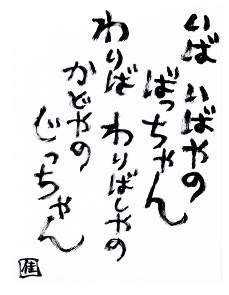 いば いばやの
ばっちゃん
わりば わりばしやの
かどやの
じっちゃん
佳